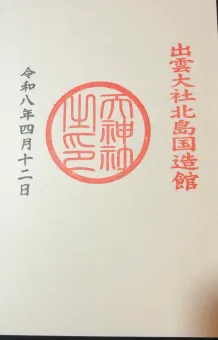 出雲大社北島国造館
天神社之印
令和八年四月十二日